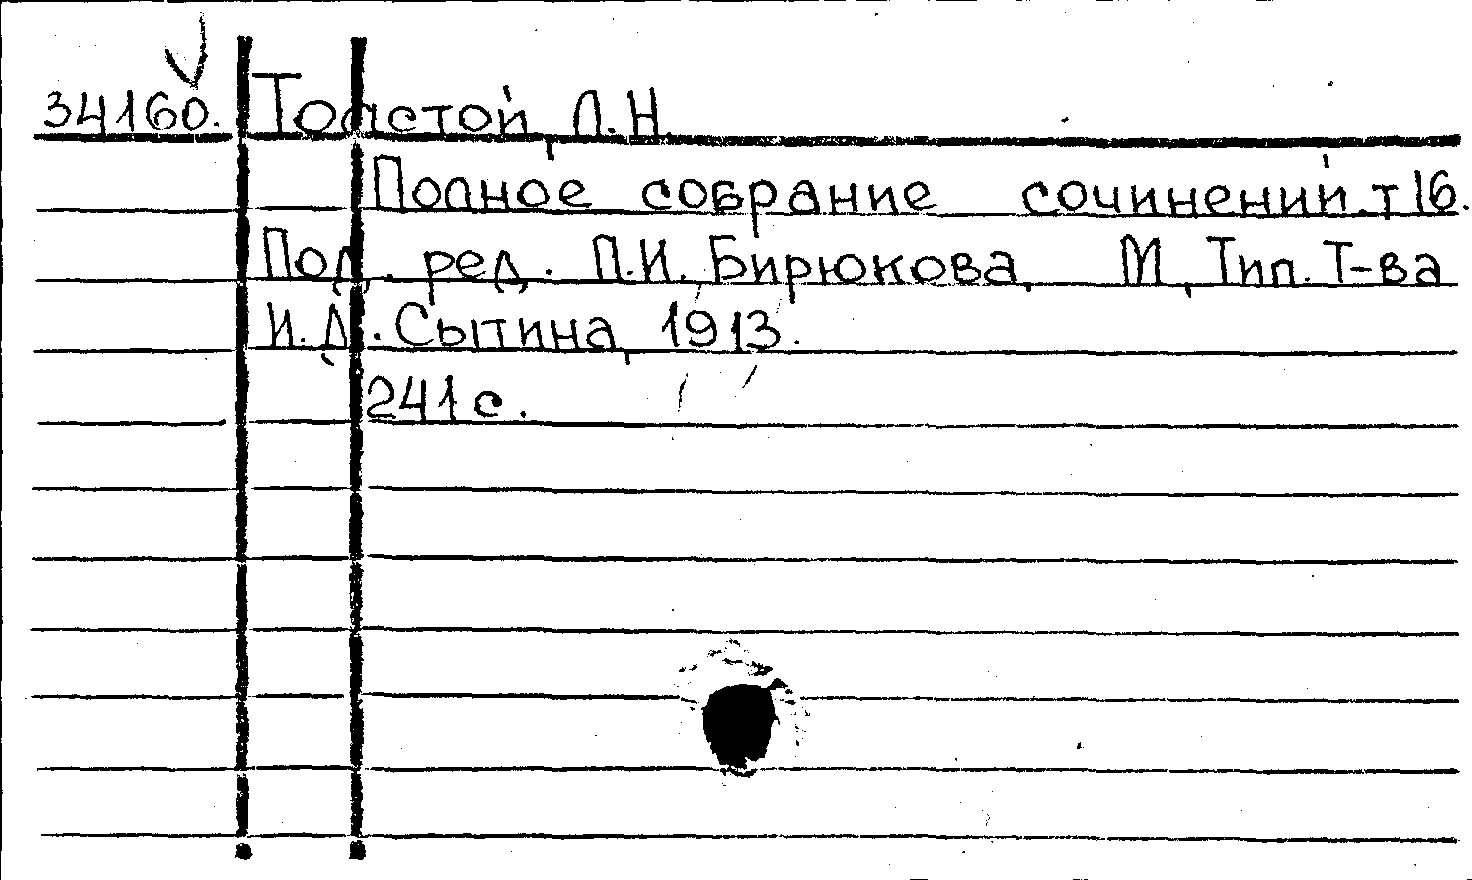 34160. Толстой, Л.Н
Полное собрание сочинений. т 16.
Под. ред. П.И. Бирюкова, М, Тип. Т-ва
И.Д. Сытина, 1913.
241 с.